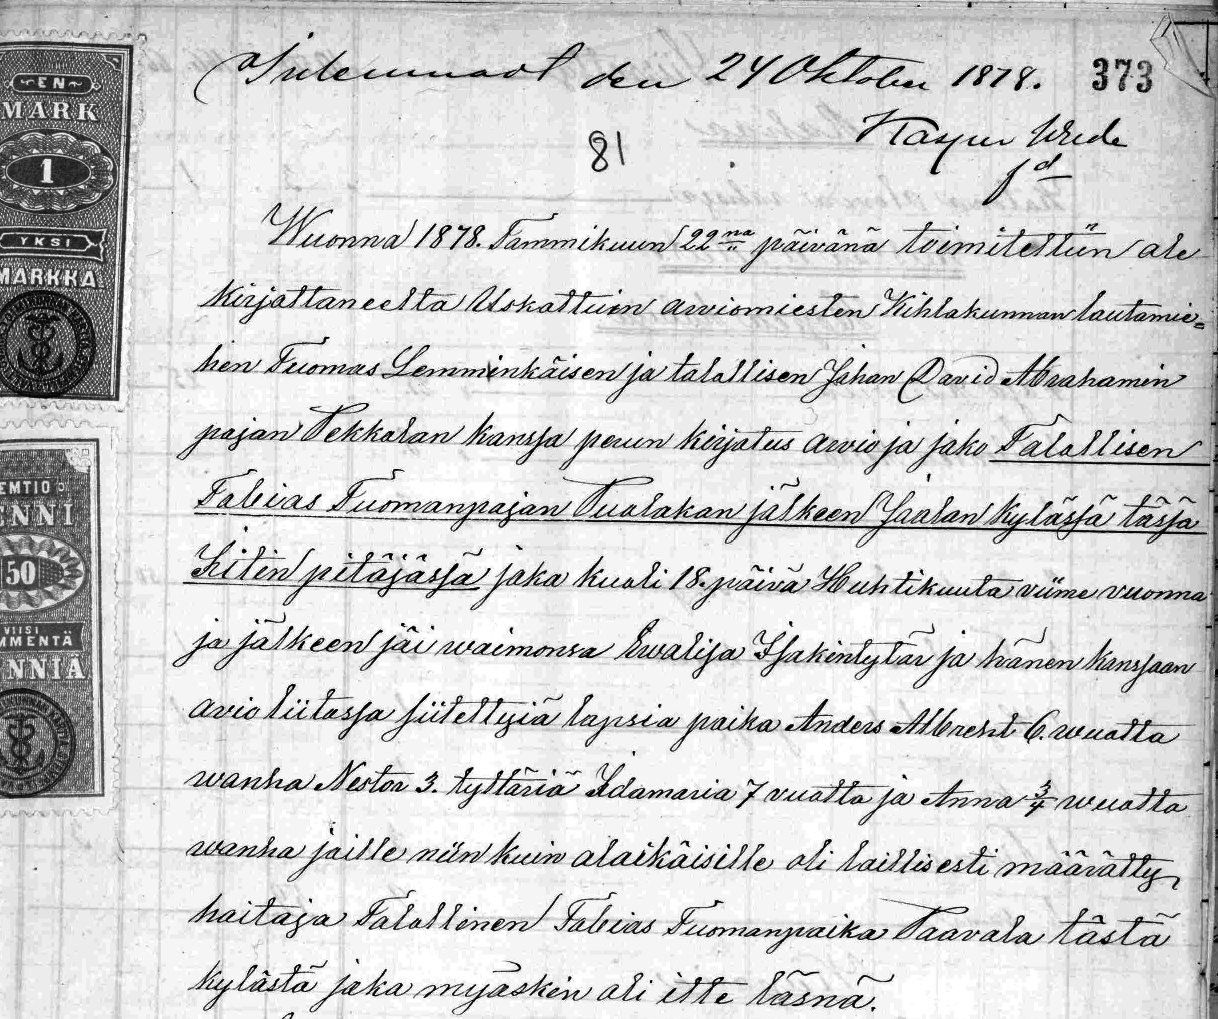 Inlemnadt den 24 Oktober 1878. 373
Kasper Wrede
fd
81
EN
MARK
1
YKSI
MARKKA
Wuonna 1878. Tammikuun 22na päivänä toimitettiin ale
kirjattaneelta Uskattuin awiomiesten Kihlakunnan lautamie=
hen Tuomas Lemminkäisen ja talallisen Johan David Abrahamin
pojan Pekkalan kanssa perun kirjotus awio ja jako Talallisen
Tobias Tuomanpojan Pualakan jälkeen Jaalan kylässä tässä
Iitin pitäjässä joka kuoli 18. päivä Huhtikuuta viime vuonna
ja jälkeen jäi waimonsa Ewaliisa Isakintytär ja hänen kanssaan
avioliitossa siitettyiä lapsia paika Anders Albreht 6. wuotta
wanha Nestor 3. tyttäriä Idamaria 7 vuotta ja Anna 3/4 wuotta
wanha joille niin kuin alaikäisille oli laillisesti määrätty
haitaja Talallinen Tobias Tuomanpoika Paavala tästä
kylästä joka myöskin oli itte läsnä.
EMTIO
ENNI
50
VIISI
MMENTÄ
NNIÄ